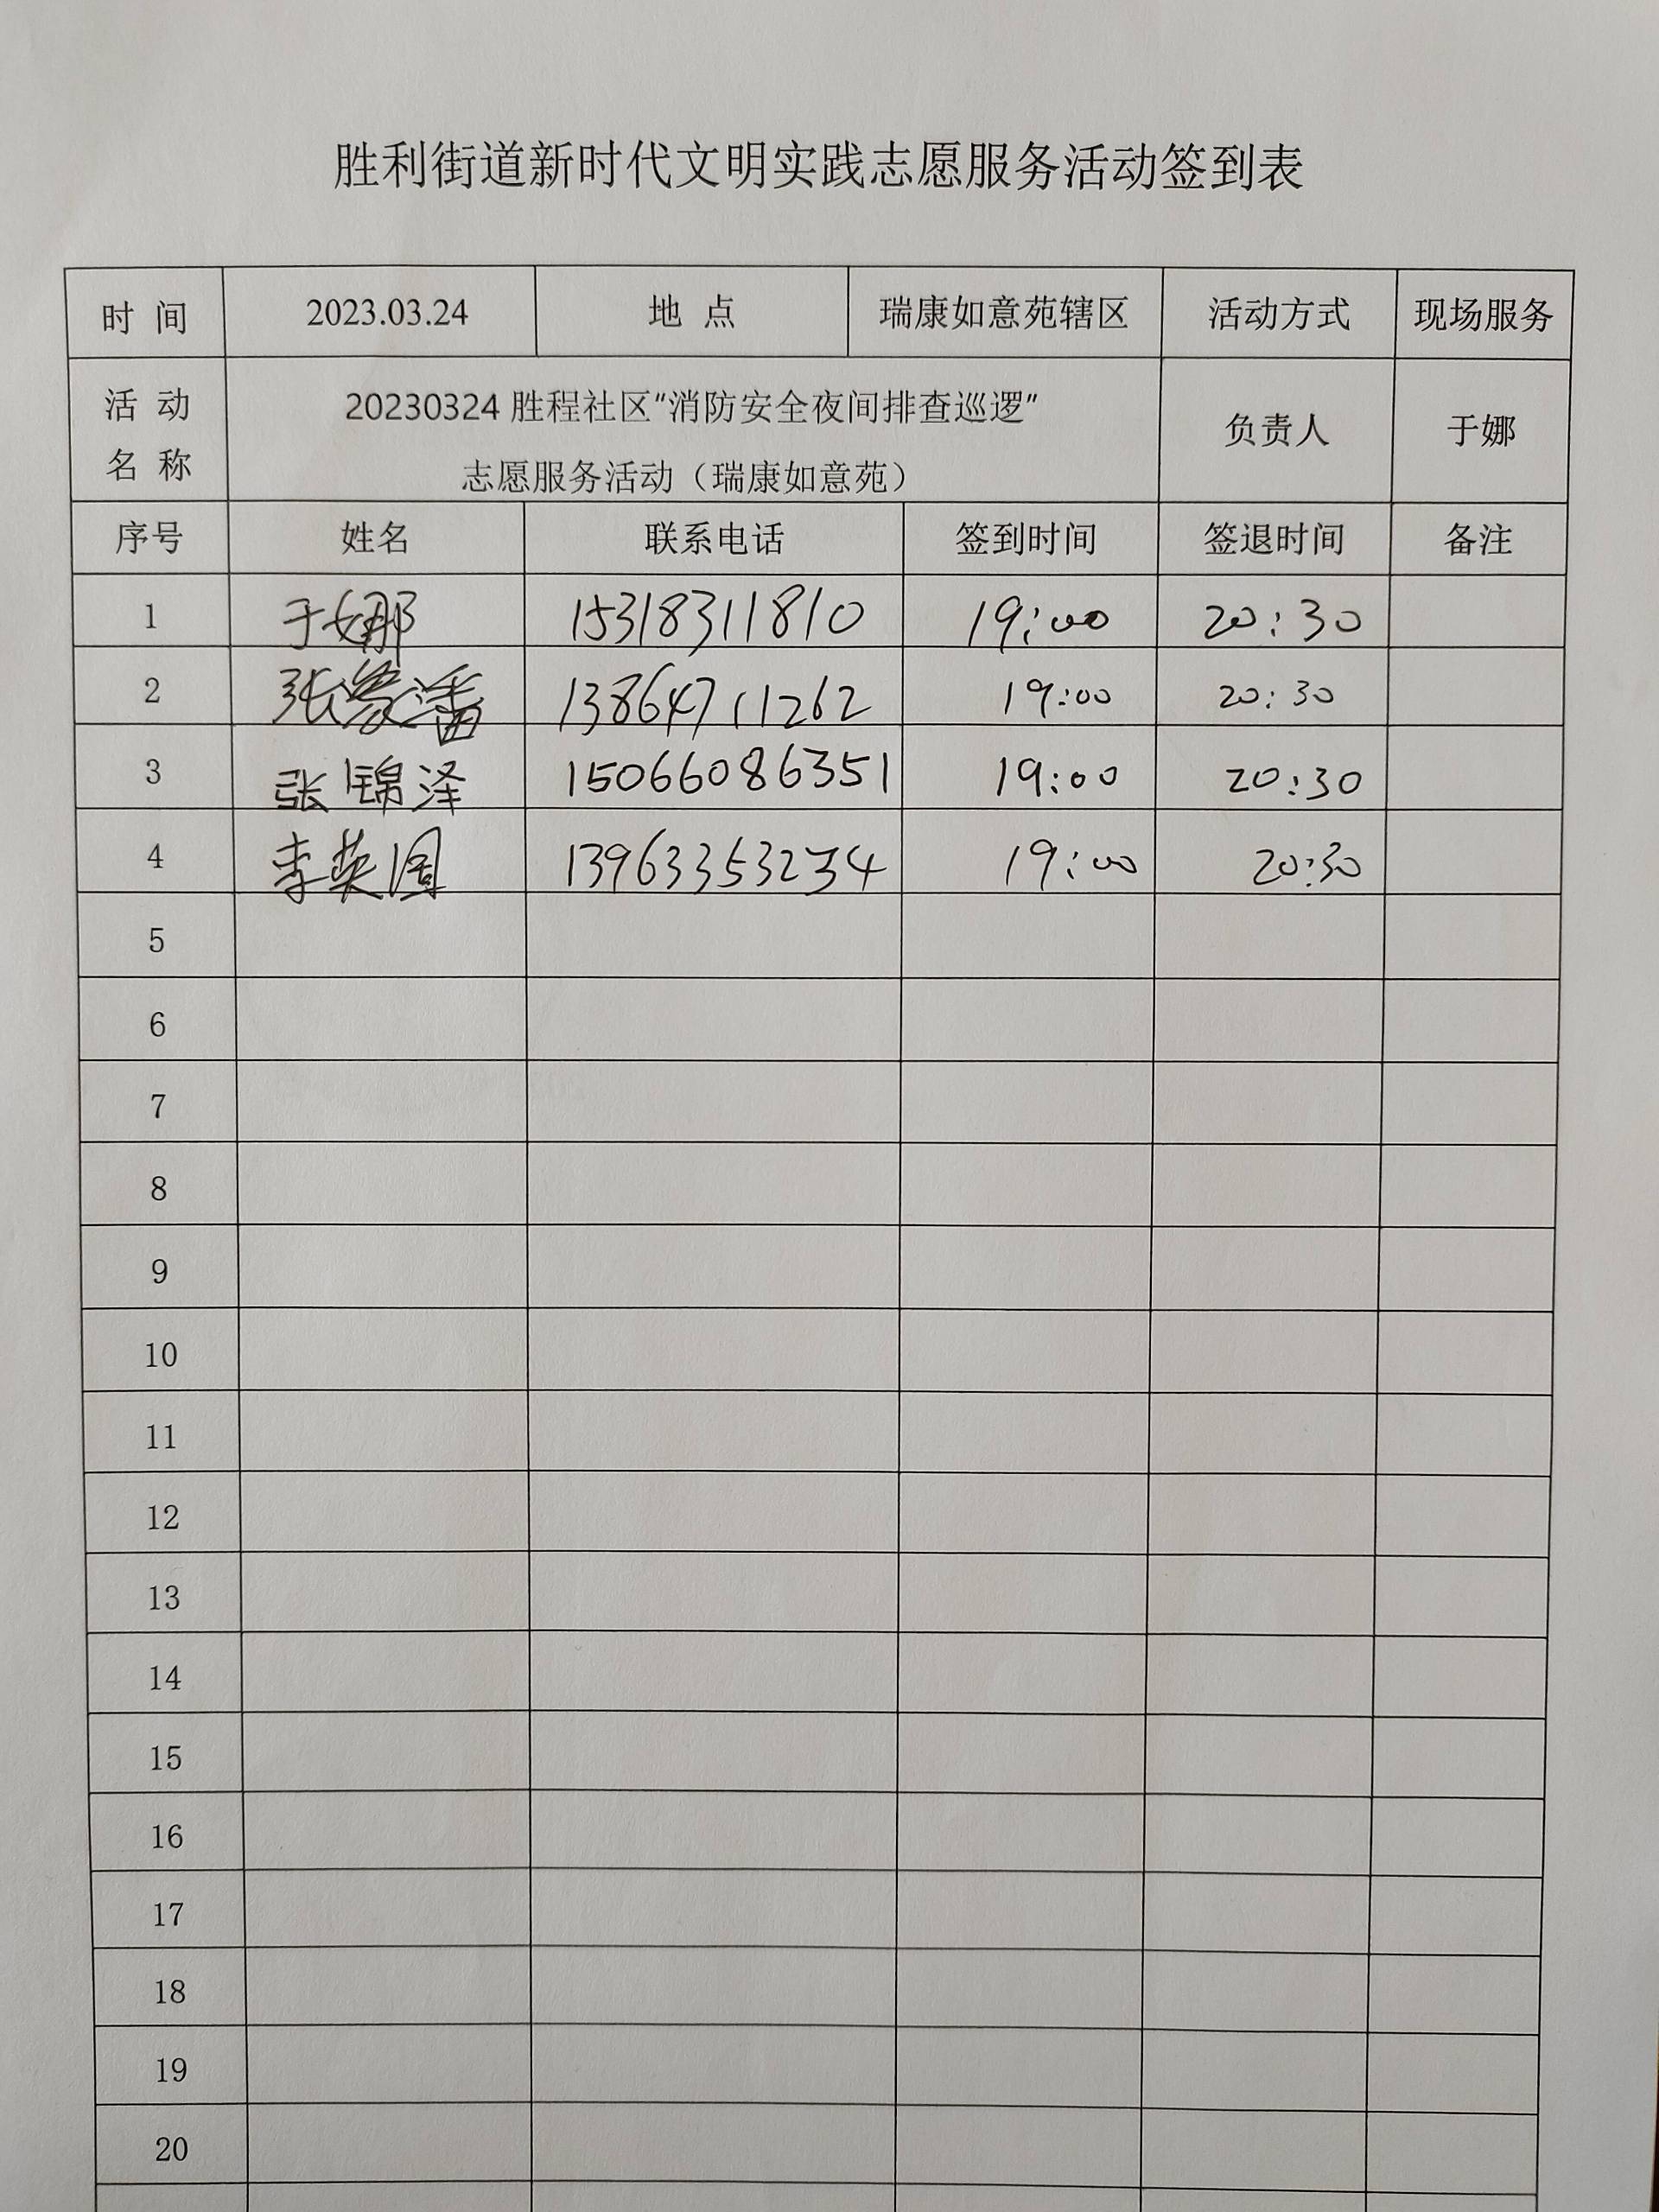 胜利街道新时代文明实践志愿服务活动签到表
时 间 2023.03.24 地 点 瑞康如意苑辖区 活动方式 现场服务
活 动 名 称 20230324胜程社区"消防安全夜间排查巡逻" 负责人 于娜
志愿服务活动（瑞康如意苑）
序号 姓名 联系电话 签到时间 签退时间 备注
1 于娜 15318311810 19:00 20:30
2 张 潘 13864711262 19:00 20:30
3 张锦泽 15066086351 19:00 20:30
4 李英 13963353234 19:00 20:30
5
6
7
8
9
10
11
12
13
14
15
16
17
18
19
20